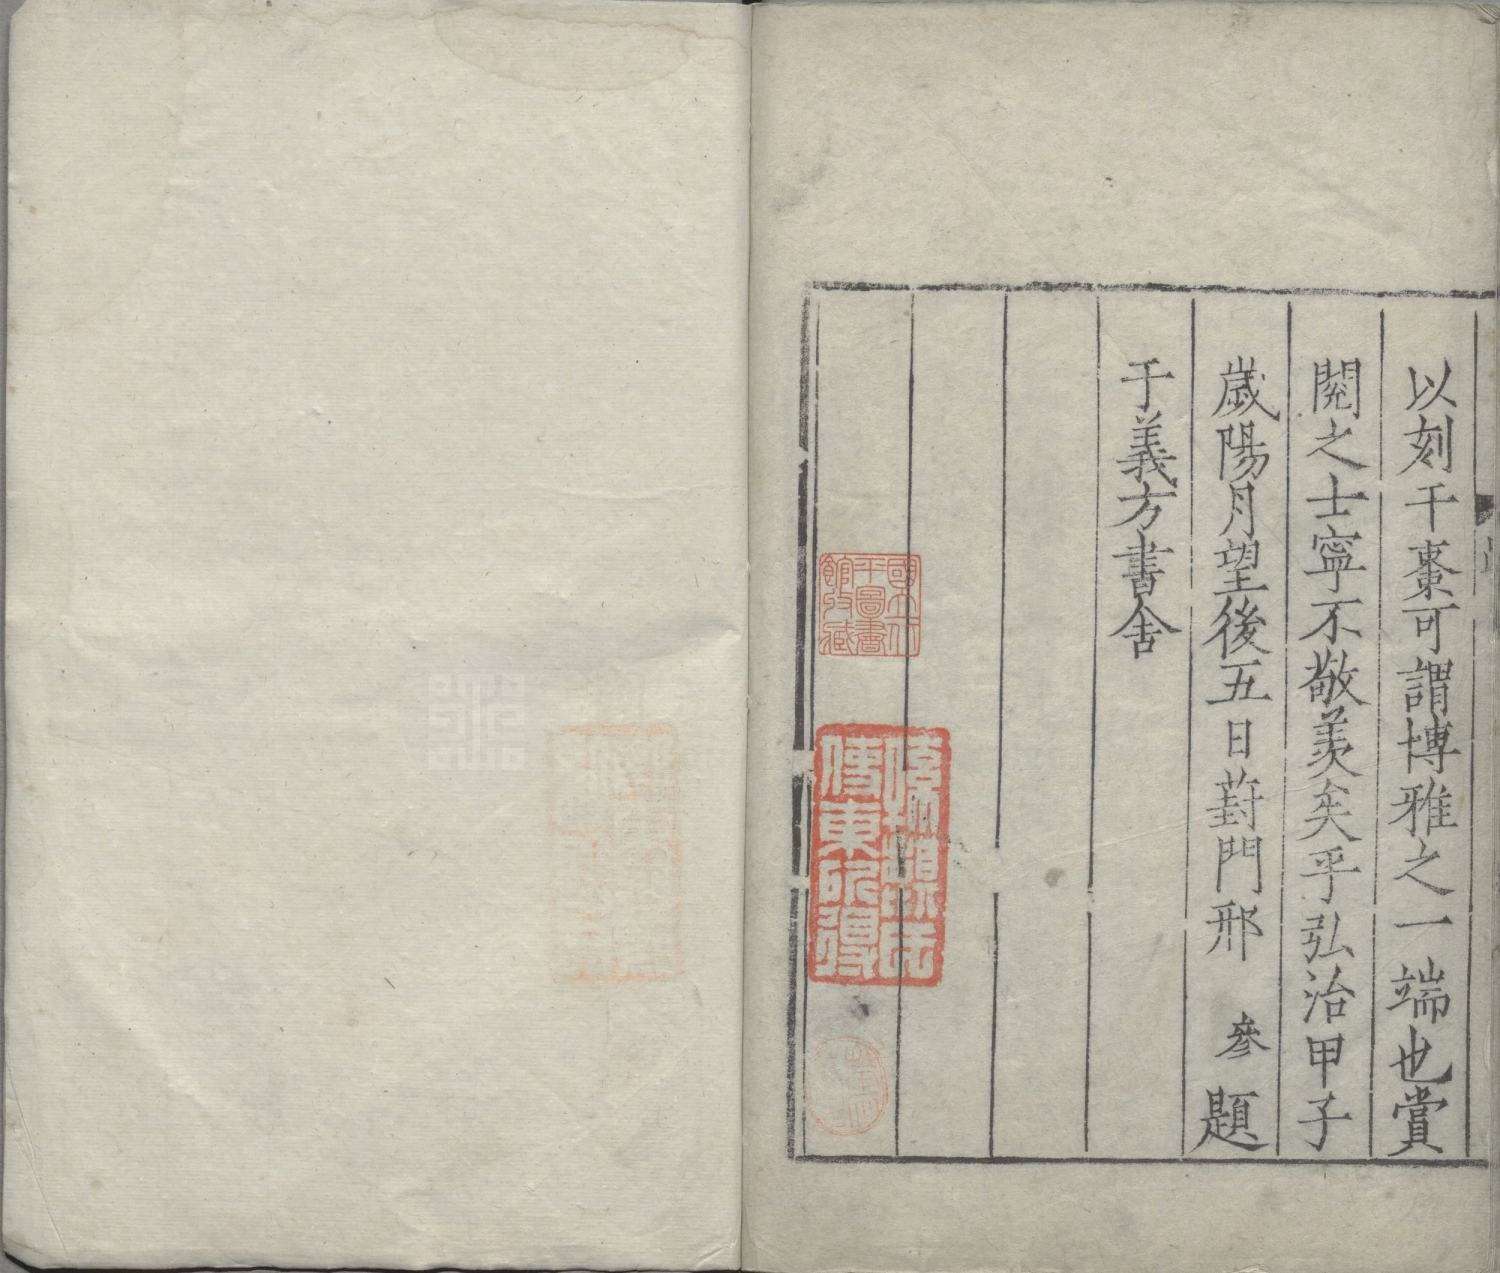 以刻于棗可謂博雅之一端也賞
閱之士寧不敬羨矣乎弘治甲子
歲陽月望後五日葑門邢參題
于義方書舍
國立北
平圖書
館收藏